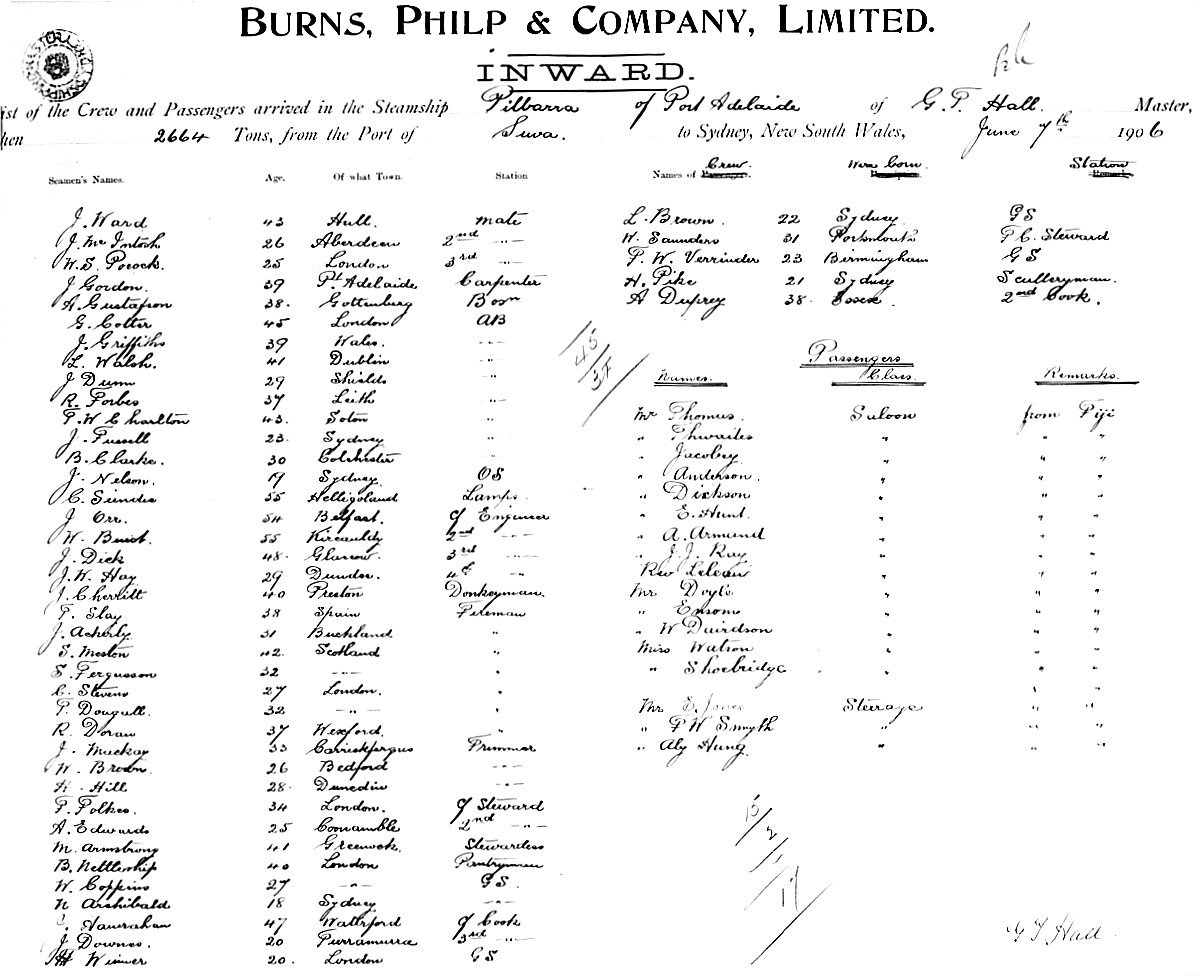 BURNS, PHILP & COMPANY, LIMITED.
INWARD.
ist of the Crew and Passengers arrived in the Steamship Pilbarra of Port Adelaide of G. T. Hall. Master,
hen 2664 Tons, from the Port of Suva. to Sydney, New South Wales, June 7th 1906
Seamen's Names. Age. Of what Town. Station
J. Ward 43 Hull. Mate
J. Mc Intosh 26 Aberdeen 2nd -"-
W. S. Pocock. 25 London 3rd -"-
J Gordon. 39 Pt Adelaide Carpenter
A. Gustafson 38. Gottenburg Bosn
G. Colter 45 London AB
J. Griffiths 39 Wales. -"-
L. Walsh. 41 Dublin "
J Dunn 29 Shields -"-
R. Forbes 37 Leith "
F. W Charlton 43. Soton "
J. Fussell 23. Sydney "
B. Clarke. 30 Colchester -"-
J. Nelson. 19 Sydney. OS
C. Sündie 55 Helligoland Lamps.
J. Orr. 54 Belfast. Cf Engineer
W. Buist. 55 Kircauldy 2nd -"-
J. Dick 48. Glasgow. 3rd -"-
J. W. Hay 29 Dundee. 4th -"-
J. Cherritt 40 Preston Donkeyman.
F. Slay 38 Spain Fireman
J. Ackerly. 31 Buckland "
S. Meston 42. Scotland "
S. Fergusson 32 -"- "
C. Stevens 27 London. "
T. Dougall. 32 -"- "
R. Doran 37 Wexford. "
J. Mackay 33 Carrickfergus Trimmer
W. Brown. 26 Bedford -"-
Hill 28. Dunedin -"-
F. Folkes. 34 London. Cf Steward
A. Edwards 25 Coonamble 2nd -"-
M. Armstrong 41 Greenock. Stewardess
B. Nettleship 40 London Pantryman
W. Coppins 27 -"- GS.
N Archibald 18 Sydney -"-
Hanrahan 47 Waterford Cf Cook
J Downes. 20 Turramurra 3rd -"-
Winner 20. London GS
Names of Crew. Were born. Station
L. Brown. 22 Sydney GS
W. Saunders 31 Portsmouth F C. Steward
F. W. Verrinder 23 Birmingham GS
H. Pike 21 Sydney Sculleryman.
A Duprey 38. Essex. 2nd Cook.
45
Passengers
Names. Class. Remarks.
Mr Thomas. Saloon from Fiji
" Thwaites " " "
" Jacobey " " "
" Anderson. " " "
" Dickson " " "
" E. Hunt. " " "
" A. Armund " " "
" J. J. Ray " " "
Rev Lelean " " "
Mr Doyle " " "
" Ensom " " "
" W Davidson " " "
Miss Watson " " "
" Shoebridge " " "
Mr E. Jones Steerage " "
" F W Smyth " " "
" Aly Hung " " "
15
2
1
17
G T Hall